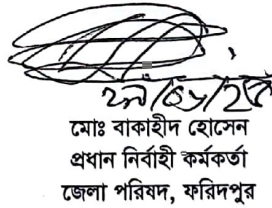 মোঃ বাকাহীদ হোসেন
প্রধান নির্বাহী কর্মকর্তা
জেলা পরিষদ, ফরিদপুর